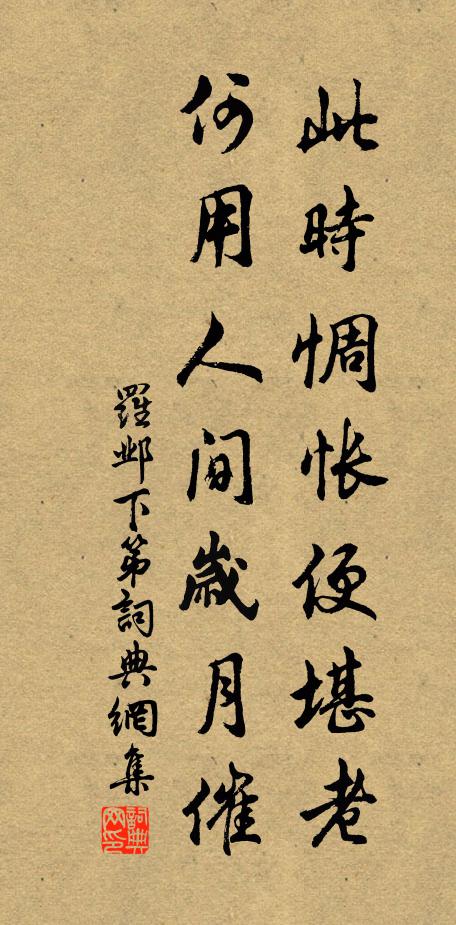 此時惆悵便堪老
何用人間歲月催
羅鄴下第詞典網集
詞典网印